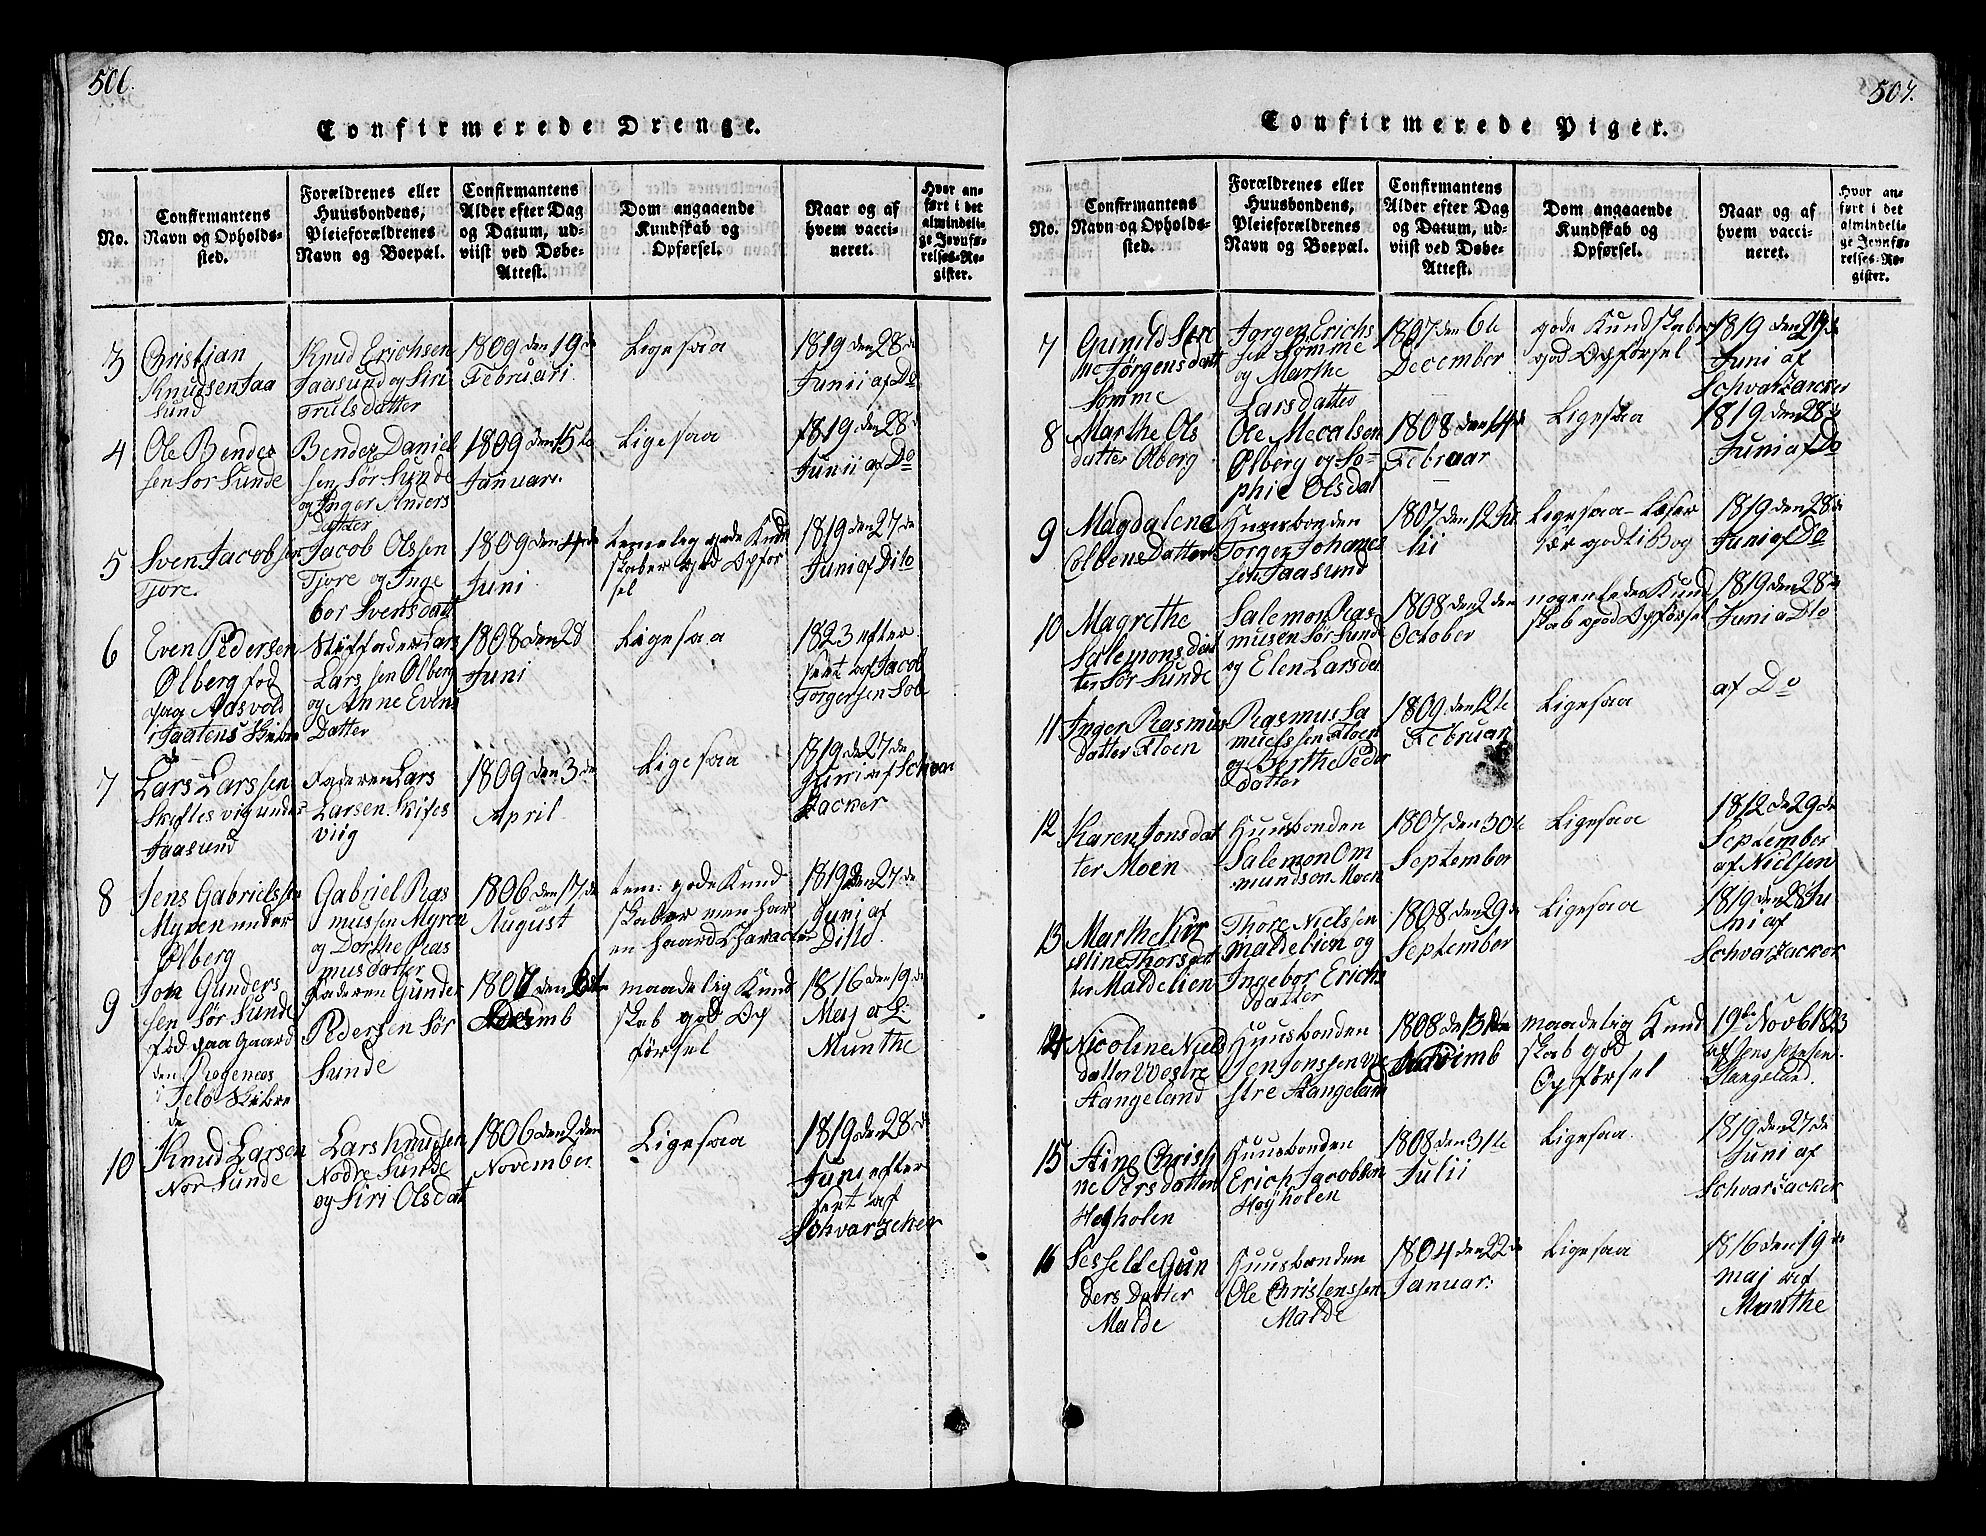 506.
Confirmerede Drenge.
No.
Confirmantens
Navn og Opholds-
sted.
Forældrenes eller
Huusbondens,
Pleieforældrenes
Navn og Boepæl.
Confirmantens
Alder efter Dag
og Datum, ud-
viist ved Døbe-
Attest.
Dom angaaende
Kundskab og
Opførsel.
Naar og af
hvem vacci-
neret.
Hvor an-
ført i det
almindeli-
ge Jevnfø-
relses-Re-
gister.
3
Christjan
Knudsen Jaa
sund
Knud Erichsen
Jaasund og Siri
Truls datter
1809 den 19de
Februari.
Ligesaa
1819 den 28de
Junii af Do
4
Ole Bendes
sen Sør Sunde
Bendes Daniel
sen Sør Sunde
og Inger Anders
Datter
1809 den 15te
Januar.
Ligesaa
1819 den 28de
Junii af Do
5
Sven Jacobsen
Tjore.
Jacob Olssen
Tjore og Inge
bor Svensdatt
1809 den 4de
Juni
temeleg gode Kund
skaber god Opfør
sel
1819 den 27de
Juni af Dito
6
Even Pedersen
Ølberg fød
paa Aasvold
i Jaatens Skibre
de
Styffader Lars
Larssen Ølberg
og Anne Evens
Datter
1808 den 28
Juni
Ligesaa
1823 efter
sert af Jacob
Torgersen Sob
7
Lars Larssen
Skeftes vig under
Jaasund
Faderen Lars
Larsen Skifes
viig
1809 den 3de
April
Ligesaa
1819 de 27de
Juni af Schvar
zacker
8
Jens Gabrielssen
Myren under
Ølberg
Gabriel Ras
mussen Myren
og Dorthe Ras
musdatter
1806 den 17de
August
tem: gode Kund
skaber men har
en haard Character
1819 den 27de
Juni af
Ditto
9
Jon Gunders
sen Sør Sunde
fød paa Gaard
den Røgenes
i Jelø Skibre
de
Faderen Gunder
Pedersen Sør
Sunde
maadelig Kund
skab god Op
førsel
1816 den 19de
Maj af L:
Munthe
10
Knud Larsen
Nor Sunde
Lars Knudsen
Nodre Sunde
og Siri Olsdat
1806 den 2den
November.
Ligesaa
1819 den 28de
Juni efter
sert af
Schvarzeker
507.
Confirmerede Piger.
No.
Confirmantens
Navn og Opholds-
sted.
Forældrenes eller
Huusbondens,
Pleieforældrenes
Navn og Boepæl.
Confirmantens
Alder efter Dag
og Datum, ud-
viist ved Døbe-
Attest.
Dom angaaende
Kundskab og
Opførsel.
Naar og af
hvem vacci-
neret.
Hvor an-
ført i det
almindeli-
ge Jevnfø-
relses-Re-
gister.
7
Gunild Stri
ne Jørgensdatt
Sømme
Jørgen Erichs
sen Sømme
og Marthe
Larsdatter
1807 den 6te
December
gode Kundskaber
god Opførsel
1819 den 29de
Juni af
Schvarzacker
8
Marthe Ols
datter Ølberg
Ole Mecalsen
Ølberg og So-
phie Olsdat
1808 den 14de
Februar
Ligesaa
1819 den 28de
Juni af Do
9
Magdalena
Colbens Datter
Huusbonden
Torger Johanes
sen Jaasund
1807 den 12 Ju
lii
Ligesaa - Læser
sær godt i Bog
1819 den 28de
Juni af Do
10
Magrethe
Salemonsdat
ter Sør Sunde
Salemon Ras
musen Sør Sund
og Elen Larsdat
1808 den 2den
October
nogenledes Kund
skab god Opførsel
1819 den 28de
Juni a Dto
11
Inger Rasmus
datter Floen
Rasmus Sa
muelssen Floen
og Berthe Peder
datter
1809 den 12te
Februari
Ligesaa
af Do
12
Karen Jonsdat
ter Moen
Huusbonden
Salemon Om
mundson Moen
1807 den 30te
September
Ligesaa
1812 de 29de
September
af Nielsen
13
Marthe Kir
stine Thorsdat
ter Maldelien
Thore Nielssen
Maldelien og
Ingebor Erichs
datter
1808 den 29de
September
Ligesaa
1819 den 28 Ju
ni af
Schvarzacker
14
Nicoline Niels
datter Westre
Stangeland
Huusbonden
Jon Jonssen We
stre Stangeland
1808 de 13de
maadelig Kund
skab god
Opførsel
19de Novb 1823
af Jens Jensen
Stangeland.
15
Stine Christi
ne Persdatter
Høyholen
Huusbonden
Erich Jacobsen
Høyholen
1808 den 31te
Julii
Ligesaa
1819 den 27de
Juni af
Schvarzacker
16
Sesselle Gun
ders Datter
Malde
Huusbonden
Ole Christenssen
Malde
1804 den 22de
Januar:
Ligesaa
1816 den 19de
maj af
Munthe